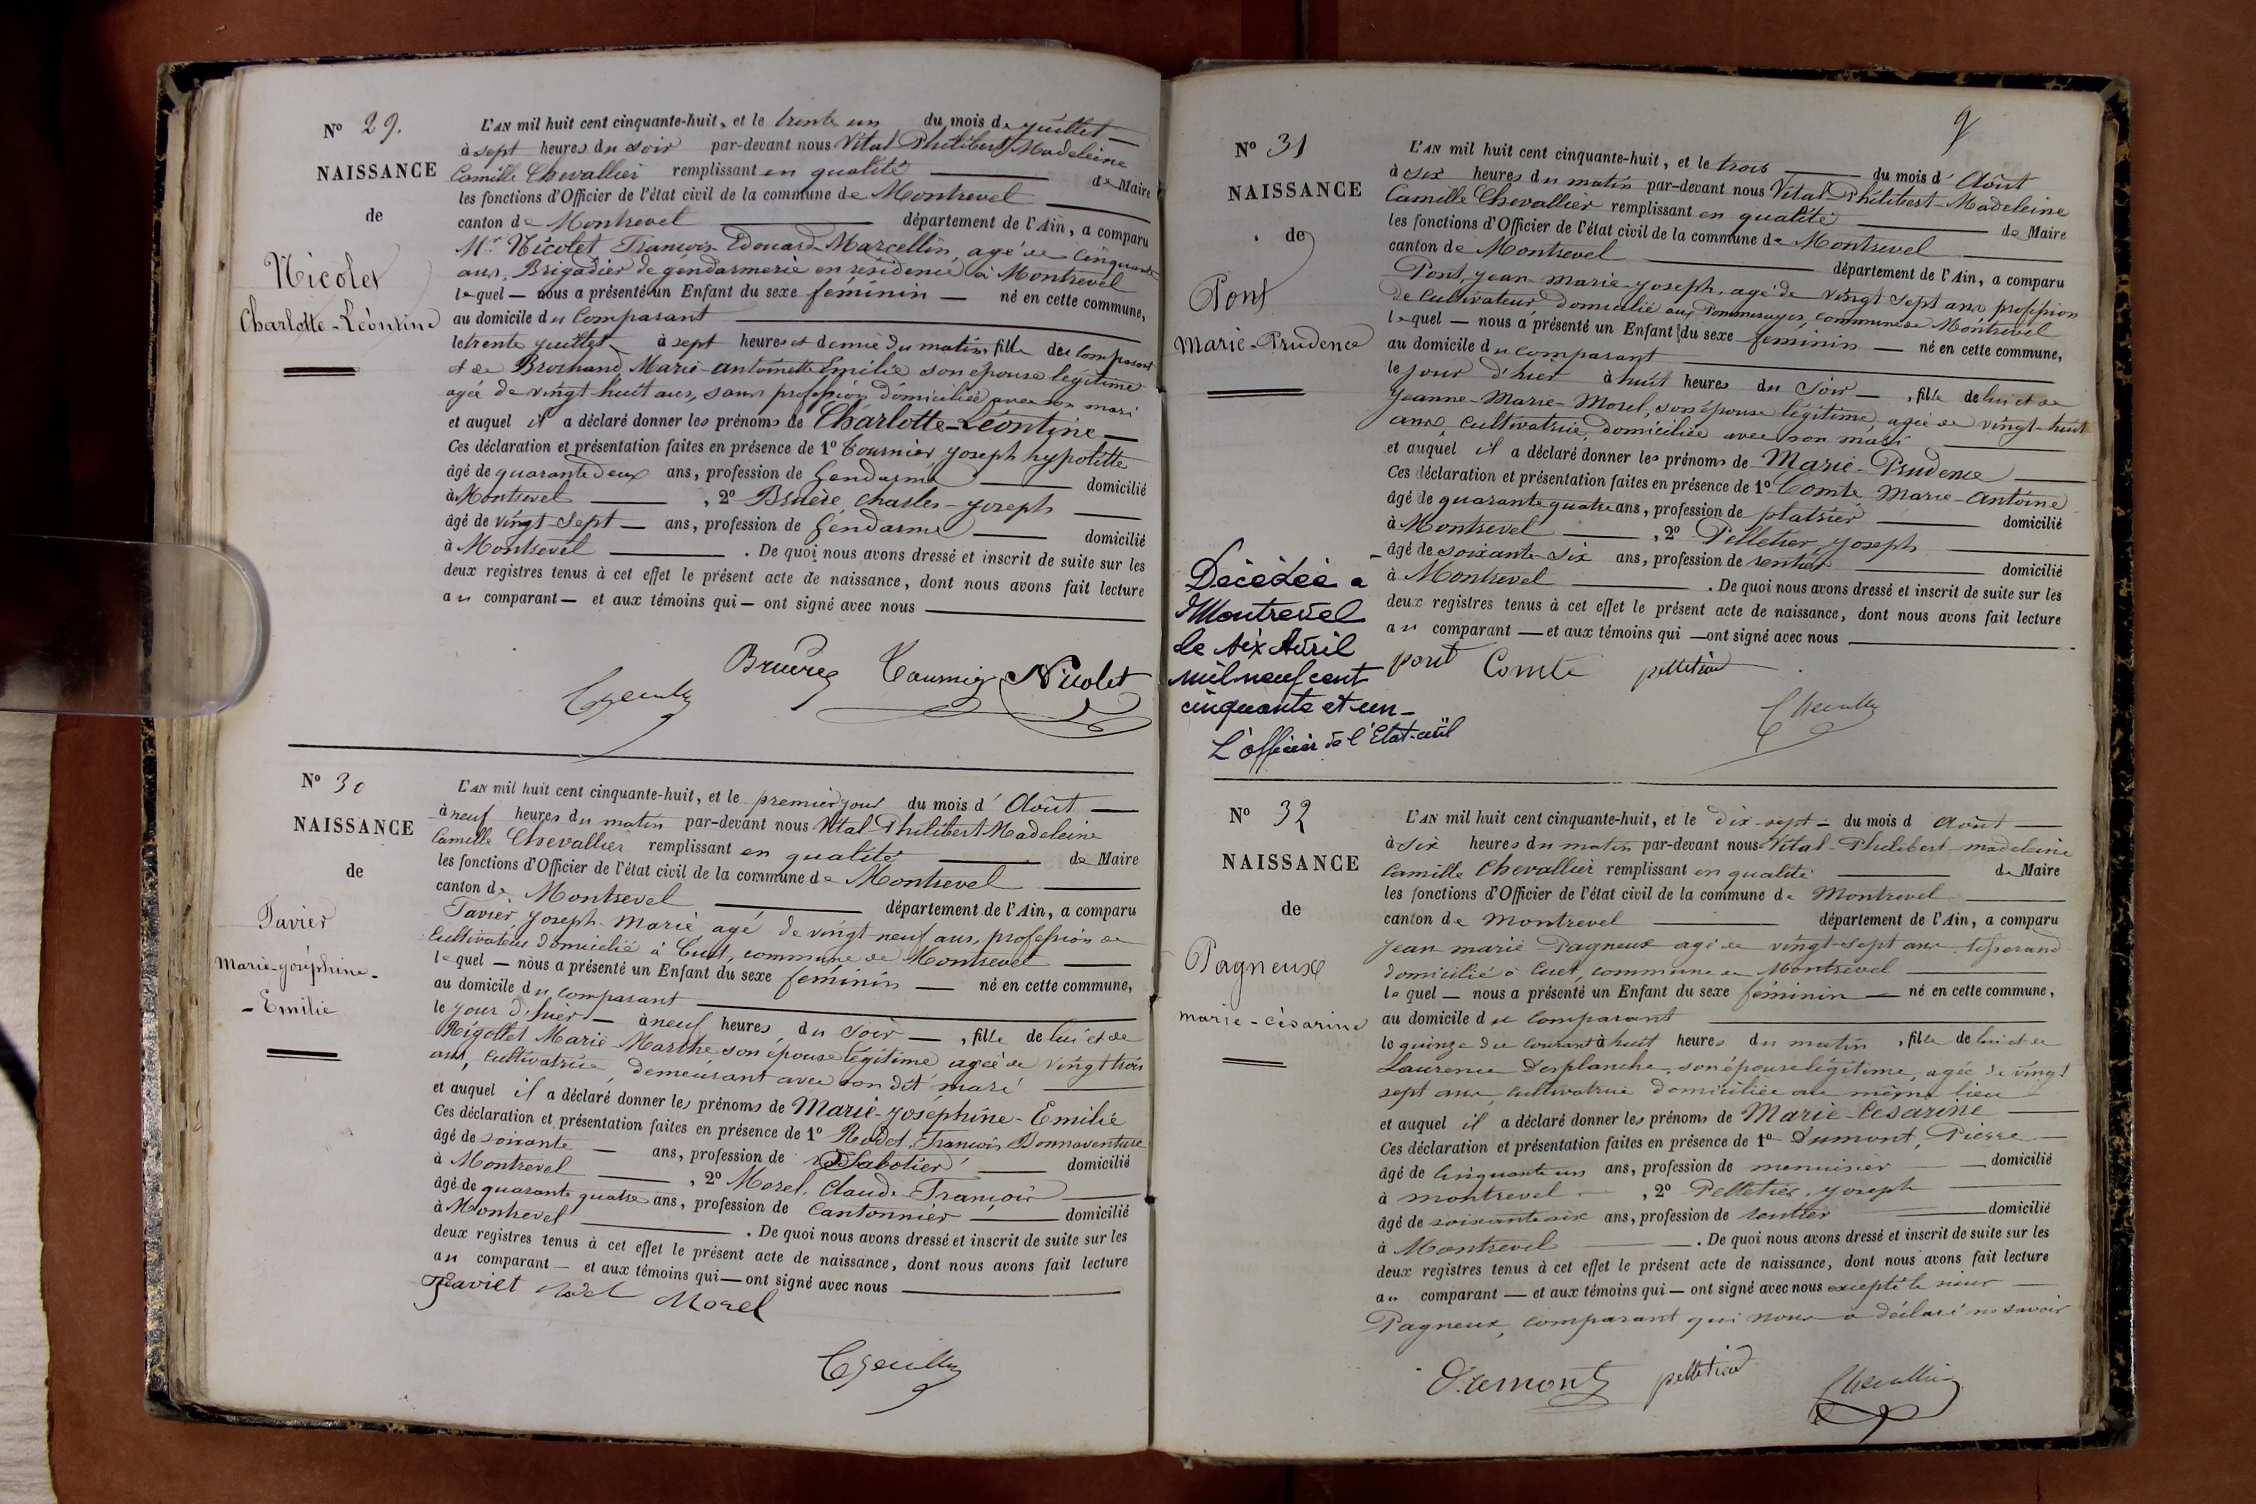 N° 29.
NAISSANCE
de
Nicolet
Charlotte-Léontine
L'AN mil huit cent cinquante-huit, et le trente un du mois de juillet
à sept heures du soir par-devant nous Vital Philibert Madeleine
Camille Chevallier remplissant en qualité de Maire
les fonctions d'Officier de l'état civil de la commune de Montrevel
canton de Montrevel département de l'Ain, a comparu
Mr Nicolet François Edouard Marcellin, agé de cinquante
ans, Brigadier de gendarmerie en résidence à Montrevel
lequel — nous a présenté un Enfant du sexe féminin — né en cette commune,
au domicile du comparant
le trente juillet à sept heures et demie du matin, fille du comparant
et de Brochand Marie-antoinette Emilie son épouse légitime
agée de vingt huit ans, sans profession, domiciliée avec son mari
et auquel il a déclaré donner les prénoms de Charlotte-Léontine
Ces déclaration et présentation faites en présence de 1° Tournier Joseph hypolitte
âgé de quarante deux ans, profession de Gendarme domicilié
à Montrevel , 2° Bruère, Charles-Joseph
âgé de vingt-sept — ans, profession de Gendarme domicilié
à Montrevel . De quoi nous avons dressé et inscrit de suite sur les
deux registres tenus à cet effet le présent acte de naissance, dont nous avons fait lecture
au comparant — et aux témoins qui — ont signé avec nous
Tournier Nicolet
N° 30
NAISSANCE
de
Tavier
Marie-joséphine-
-Emilie
L'AN mil huit cent cinquante-huit, et le premier jour du mois d'Août
à neuf heures du matin par-devant nous Vital Philibert Madeleine
Camille Chevallier remplissant en qualité de Maire
les fonctions d'Officier de l'état civil de la commune de Montrevel
canton de Montrevel département de l'Ain, a comparu
Tavier Joseph-Marie, agé de vingt neuf ans, profession de
Cultivateur domicilié à Cuet, commune de Montrevel
lequel — nous a présenté un Enfant du sexe féminin — né en cette commune,
au domicile du comparant
le jour d'hier — à neuf heures du soir — , fille de lui et de
Rigollet Marie Marthe son épouse légitime agée de vingt trois
ans, cultivatrice, demeurant avec son dit mari
et auquel il a déclaré donner les prénoms de Marie-Joséphine-Emilie
Ces déclaration et présentation faites en présence de 1° Rodet, François Bonnaventure
âgé de soixante — ans, profession de Sabotier domicilié
à Montrevel , 2° Morel, Claude-François
âgé de quarante quatre ans, profession de Cantonnier domicilié
à Montrevel . De quoi nous avons dressé et inscrit de suite sur les
deux registres tenus à cet effet le présent acte de naissance, dont nous avons fait lecture
au comparant — et aux témoins qui — ont signé avec nous
Morel
9
N° 31
NAISSANCE
de
Pont
Marie-Prudence
Décédée à
Montrevel
le six Avril
mil neuf cent
cinquante et un_
L'officier de l'Etat-civil
L'AN mil huit cent cinquante-huit, et le trois du mois d'Août
à six heures du matin par-devant nous Vital-Philibert-Madeleine
Camille Chevallier remplissant en qualité de Maire
les fonctions d'Officier de l'état civil de la commune de Montrevel
canton de Montrevel département de l'Ain, a comparu
Pont, Jean-Marie-Joseph, agé de vingt sept ans profession
de cultivateur, domicilié aux commune de Montrevel
lequel — nous a présenté un Enfant du sexe féminin — né en cette commune,
au domicile du comparant
le jour d'hier à huit heures du soir — , fille de lui et de
Jeanne-Marie-Morel, son épouse légitime agée de vingt-huit
ans, cultivatrice, domiciliée avec son mari
et auquel il a déclaré donner les prénoms de Marie-Prudence
Ces déclaration et présentation faites en présence de 1° Comte Marie-Antoine
âgé de quarante quatre ans, profession de platrier domicilié
à Montrevel , 2° Pelletier, Joseph
âgé de soixante-six ans, profession de rentier domicilié
à Montrevel . De quoi nous avons dressé et inscrit de suite sur les
deux registres tenus à cet effet le présent acte de naissance, dont nous avons fait lecture
au comparant — et aux témoins qui — ont signé avec nous
pont Comte pelletier
N° 32
NAISSANCE
de
Pagneux
marie-césarine
L'AN mil huit cent cinquante-huit, et le dix-sept — du mois d Août
à six heures du matin par-devant nous Vital-Philibert-madeleine
Camille Chevallier remplissant en qualité de Maire
les fonctions d'Officier de l'état civil de la commune de Montrevel
canton de Montrevel département de l'Ain, a comparu
Jean marie Pagneux agé de vingt-sept ans tisserand
domicilié à Cuet, commune de Montrevel
lequel — nous a présenté un Enfant du sexe féminin — né en cette commune,
au domicile du comparant
le quinze du courant à huit heures du matin , fille de lui et de
Laurence Desplanche, son épouse légitime, agée de vingt
sept ans, cultivatrice domiciliée au même lieu
et auquel il a déclaré donner les prénoms de Marie-Césarine
Ces déclaration et présentation faites en présence de 1° Dumont, Pierre
âgé de Cinquante un ans, profession de menuisier domicilié
à montrevel , 2° Pelletier, Joseph
âgé de soixante six ans, profession de rentier domicilié
à Montrevel . De quoi nous avons dressé et inscrit de suite sur les
deux registres tenus à cet effet le présent acte de naissance, dont nous avons fait lecture
au comparant — et aux témoins qui — ont signé avec nous excepté le sieur
Pagneux, comparant qui nous a déclaré ne savoir
Dumont pelletier